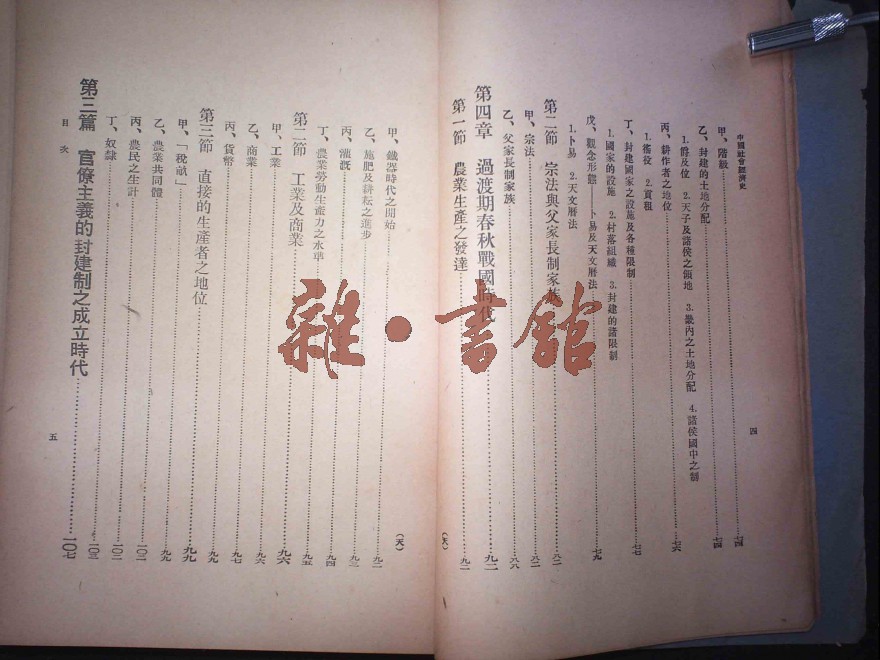 中國社會經濟史
四
甲、階級……七四
乙、封建的土地分配……七四
1.爵及位 2.天子及諸侯之領地 3.畿內之土地分配 4.諸侯國中之制
丙、耕作者之地位……七六
1.徭役 2.貢租
丁、封建國家之設施及各種限制……七七
1.國家的設施 2.村落組織 3.封建的諸限制
戊、觀念形態——卜易及天文曆法……七九
1.卜易 2.天文曆法
第二節 宗法與父家長制家族……八二
甲、宗法……八二
乙、父家長制家族……八八
第四章 過渡期春秋戰國時代……九二
第一節 農業生產之發達……九二
甲、鐵器時代之開始……九二
乙、施肥及耕耘之進步
丙、灌溉……九三
丁、農業勞動生產力之水準……九四
第二節 工業及商業……九五
甲、工業……九六
乙、商業……九六
丙、貨幣……九七
第三節 直接的生產者之地位……九九
甲、「稅畝」……九九
乙、農業共同體……九九
丙、農民之生計……一〇二
丁、奴隸……一〇二
第三篇 官僚主義的封建制之成立時代……一〇七
目次
五
雜·書館